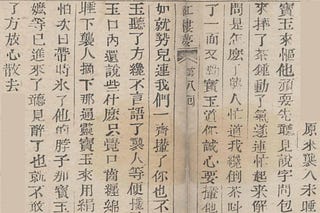 原來襲人未睡
寶玉來慪他頑耍先聽見說字問包
來摔了茶鍾動了氣遂連忙起來解
問是怎麽了襲人忙道我纔倒茶叫
了一面又勸寶玉道你誠心要攆他
紅樓夢 第八回
如就勢兒連我們一齊攆了你也不
玉聽了方纔不言語了襲人等便攙
玉口內還說些什麽只覺口齒纏綿
睡下襲人摘下那通靈寶玉來用絹
怕次日帶時冰了他的脖子那寶玉
嬤等已進來了聽見醉了也就不敢
了方放心散去